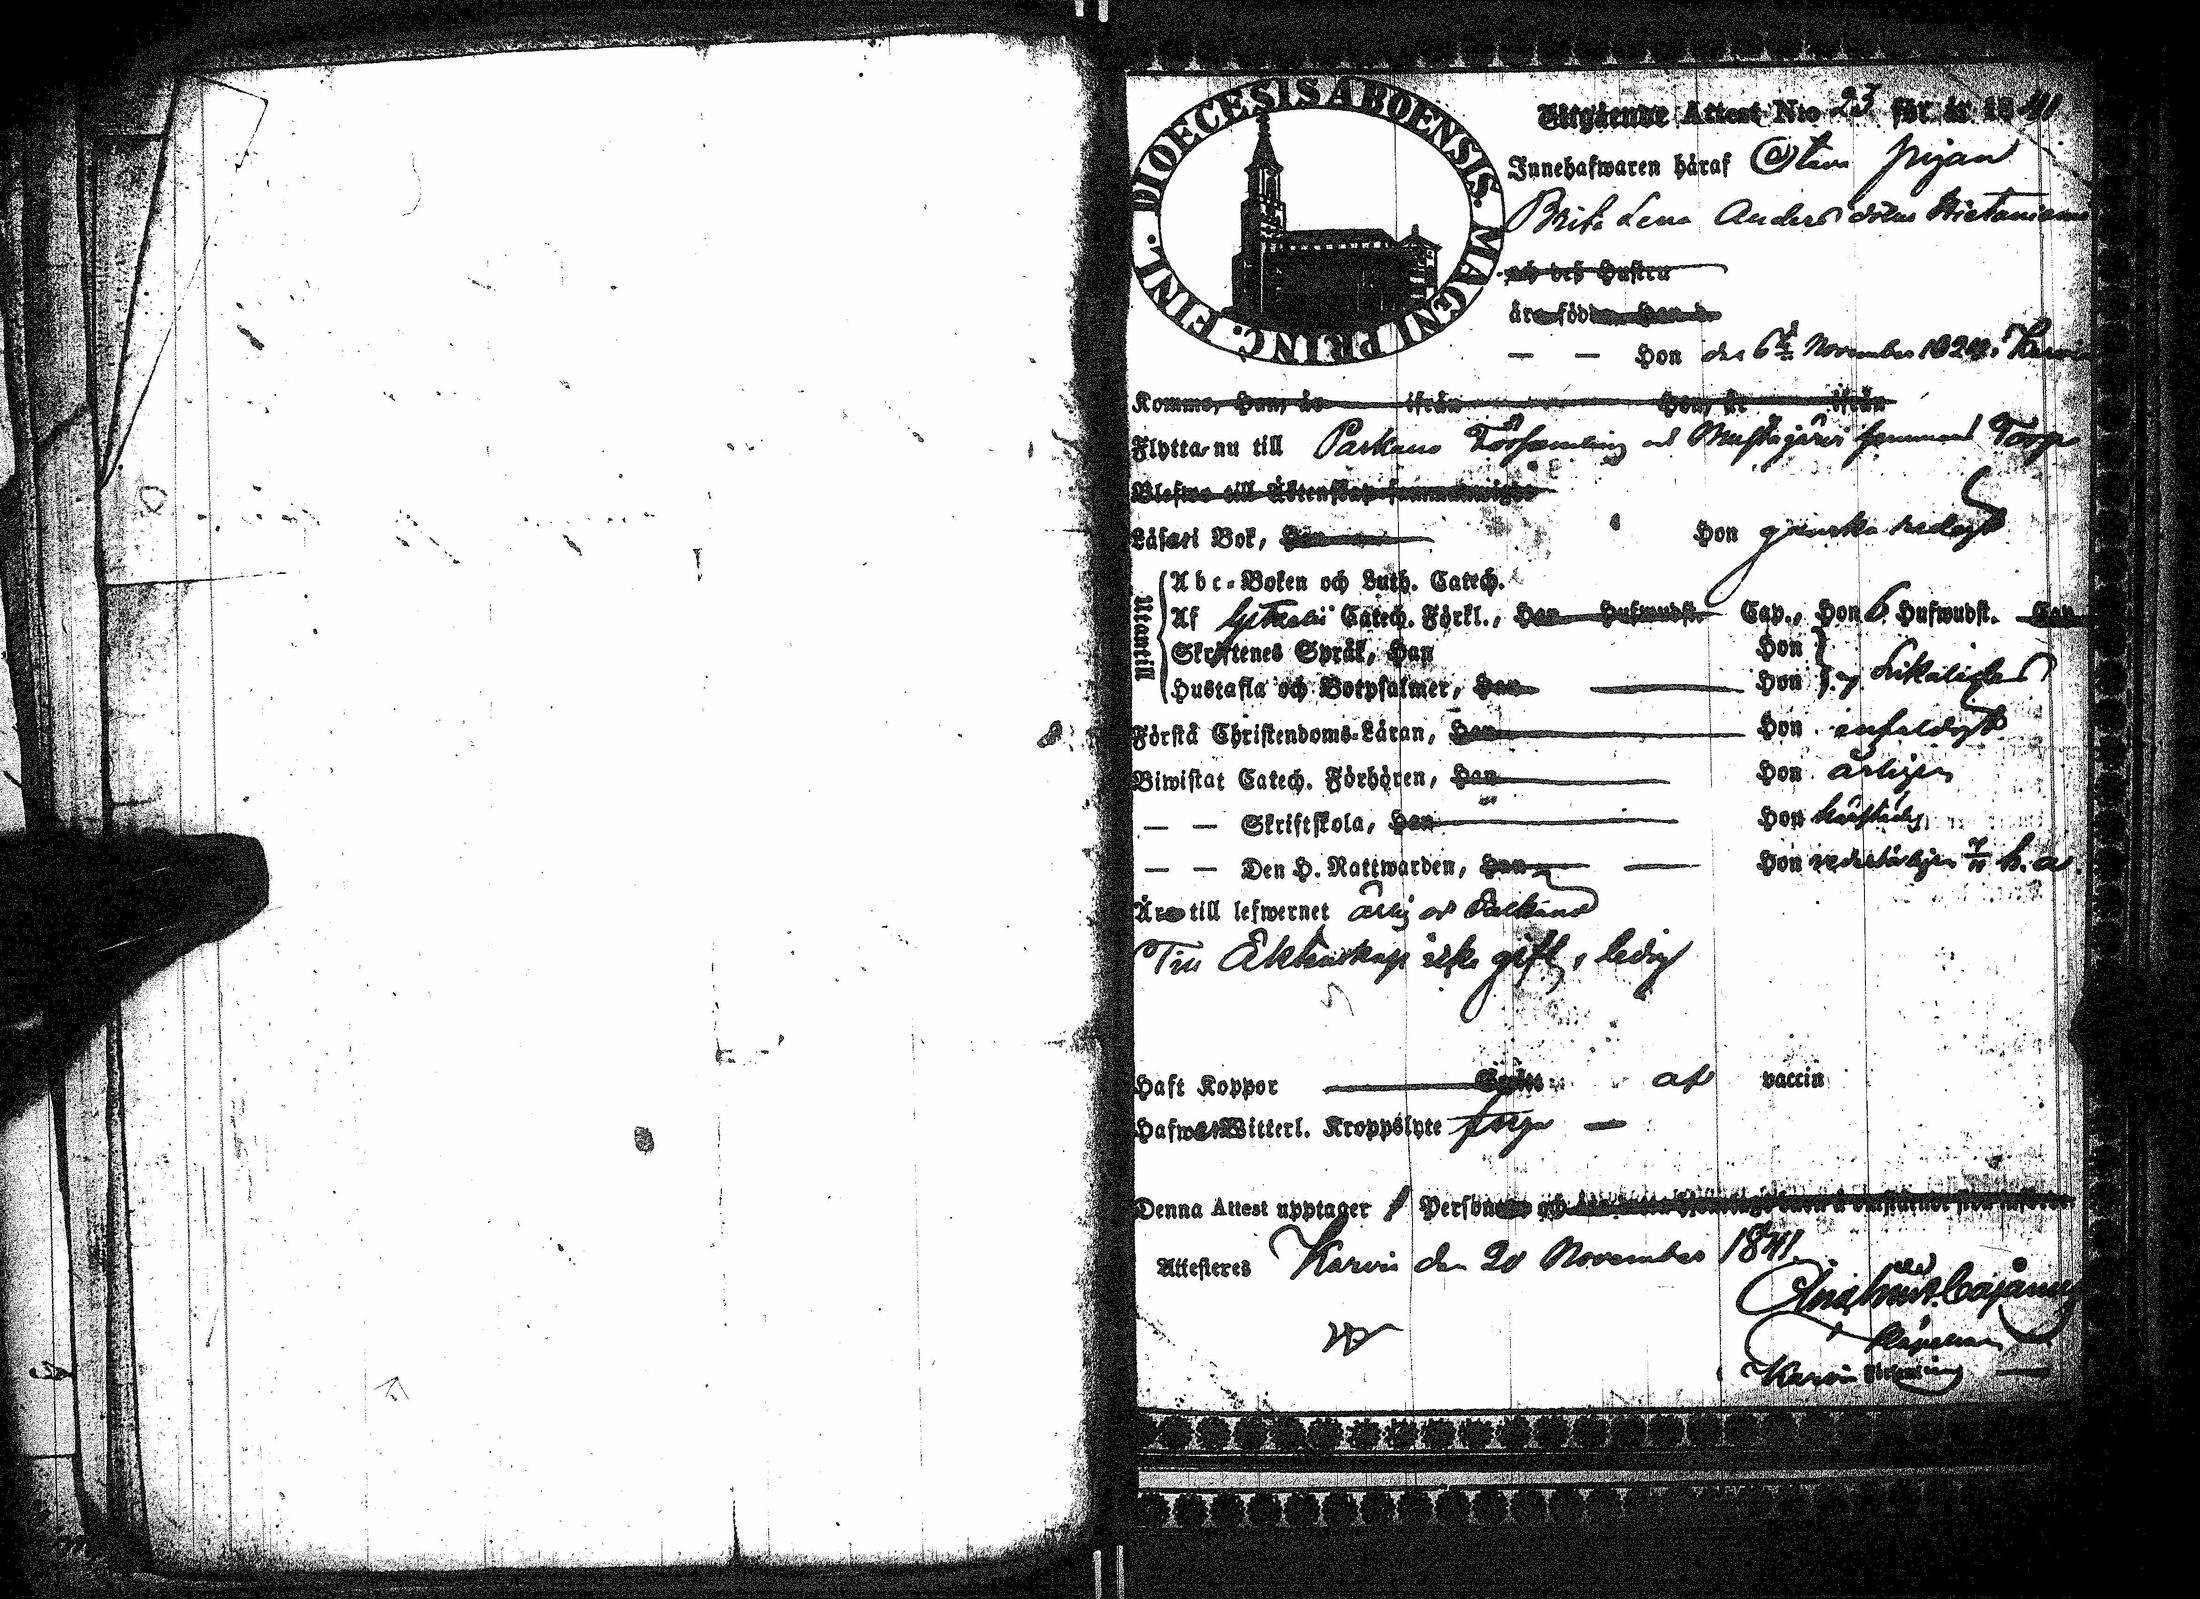 DIOECESIS ABOENSIS. MAGNI PRINC. FINL.
Utgående Attest N:o 23 för år 1841
Innehafwaren håraf Pigan
Brita Lena Anders dåter
och deß Hustru
äro födde Han
— — Hon den 6 November Karvia
Komme, Han, år ifrån Hon, år ifrån
Flytta nu till Parkano Församling och Torp
Blefwo till Äktenskap sammanwigde
Läser i Bok, Han Hon ganska redigt
Utantill
Abc-Boken och Luth. Catech.
Af Catech. Förkl., Han Hufwudst. Cap., Hon 6 Hufwudst. Cap.
Skriftenes Språk, Han Hon
Hustafla och Botpsalmer, Han Hon
Förstå Christendoms-Läran, Han Hon enfaldigt
Biwistat Catech. Förhören, Han Hon årligen
— — Skriftskola, Han Hon
— — Den H. Nattwarden, Han Hon h. a.
Äro till lefwernet ärlig och
Till Äktenskap icke gift, ledig
Haft Koppor af vaccin
Hafwa Witterl. Kroppslyte
Denna Attest upptager 1 Person och
Attesteres Karvia den 20 November 1841.
Cajanus
Kapellan
Karvia